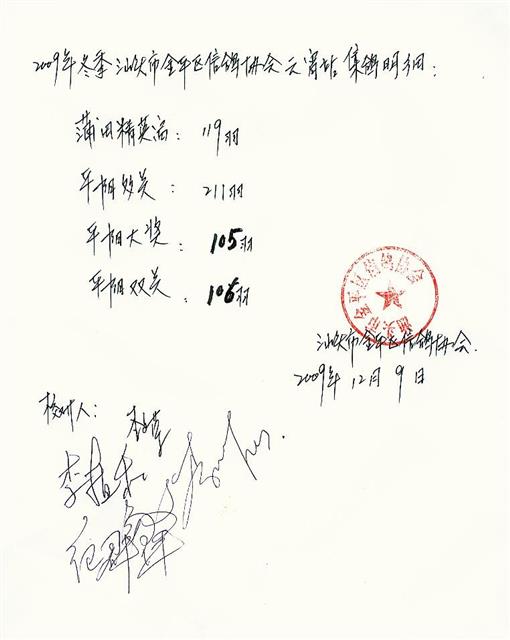 2009年冬季汕头市金平区信鸽协会元宵站集鸽明细:
莆田精英赛: 119羽
平阳双关: 211羽
平阳大奖: 105羽
平阳双关: 106羽
汕头市金平区信鸽协会
汕头市金平区信鸽协会
2009年12月9日
核对人: